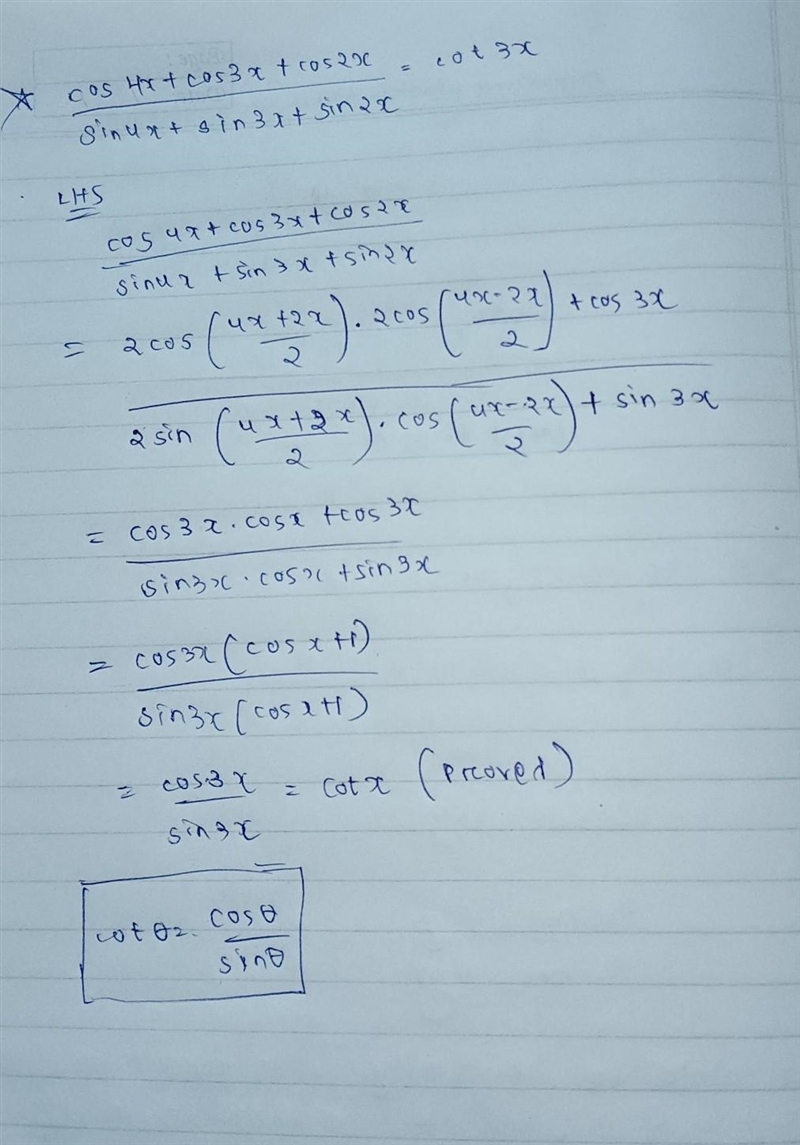 ☆ cos 4x + cos3x + cos2x = cot 3x
sin4x + sin3x + sin2x
LHS
cos 4x + cos3x + cos2x
sin4x + sin3x + sin2x
= 2cos (4x+2x) . 2cos (4x-2x) + cos 3x
2 2
2 sin (4x+2x) . cos (4x-2x) + sin 3x
2 2
= cos3x . cosx + cos3x
sin3x . cosx + sin3x
= cos3x (cosx+1)
sin3x (cosx+1)
= cos3x = cotx (Prcoved)
sin3x
cot θ = cosθ
sinθ